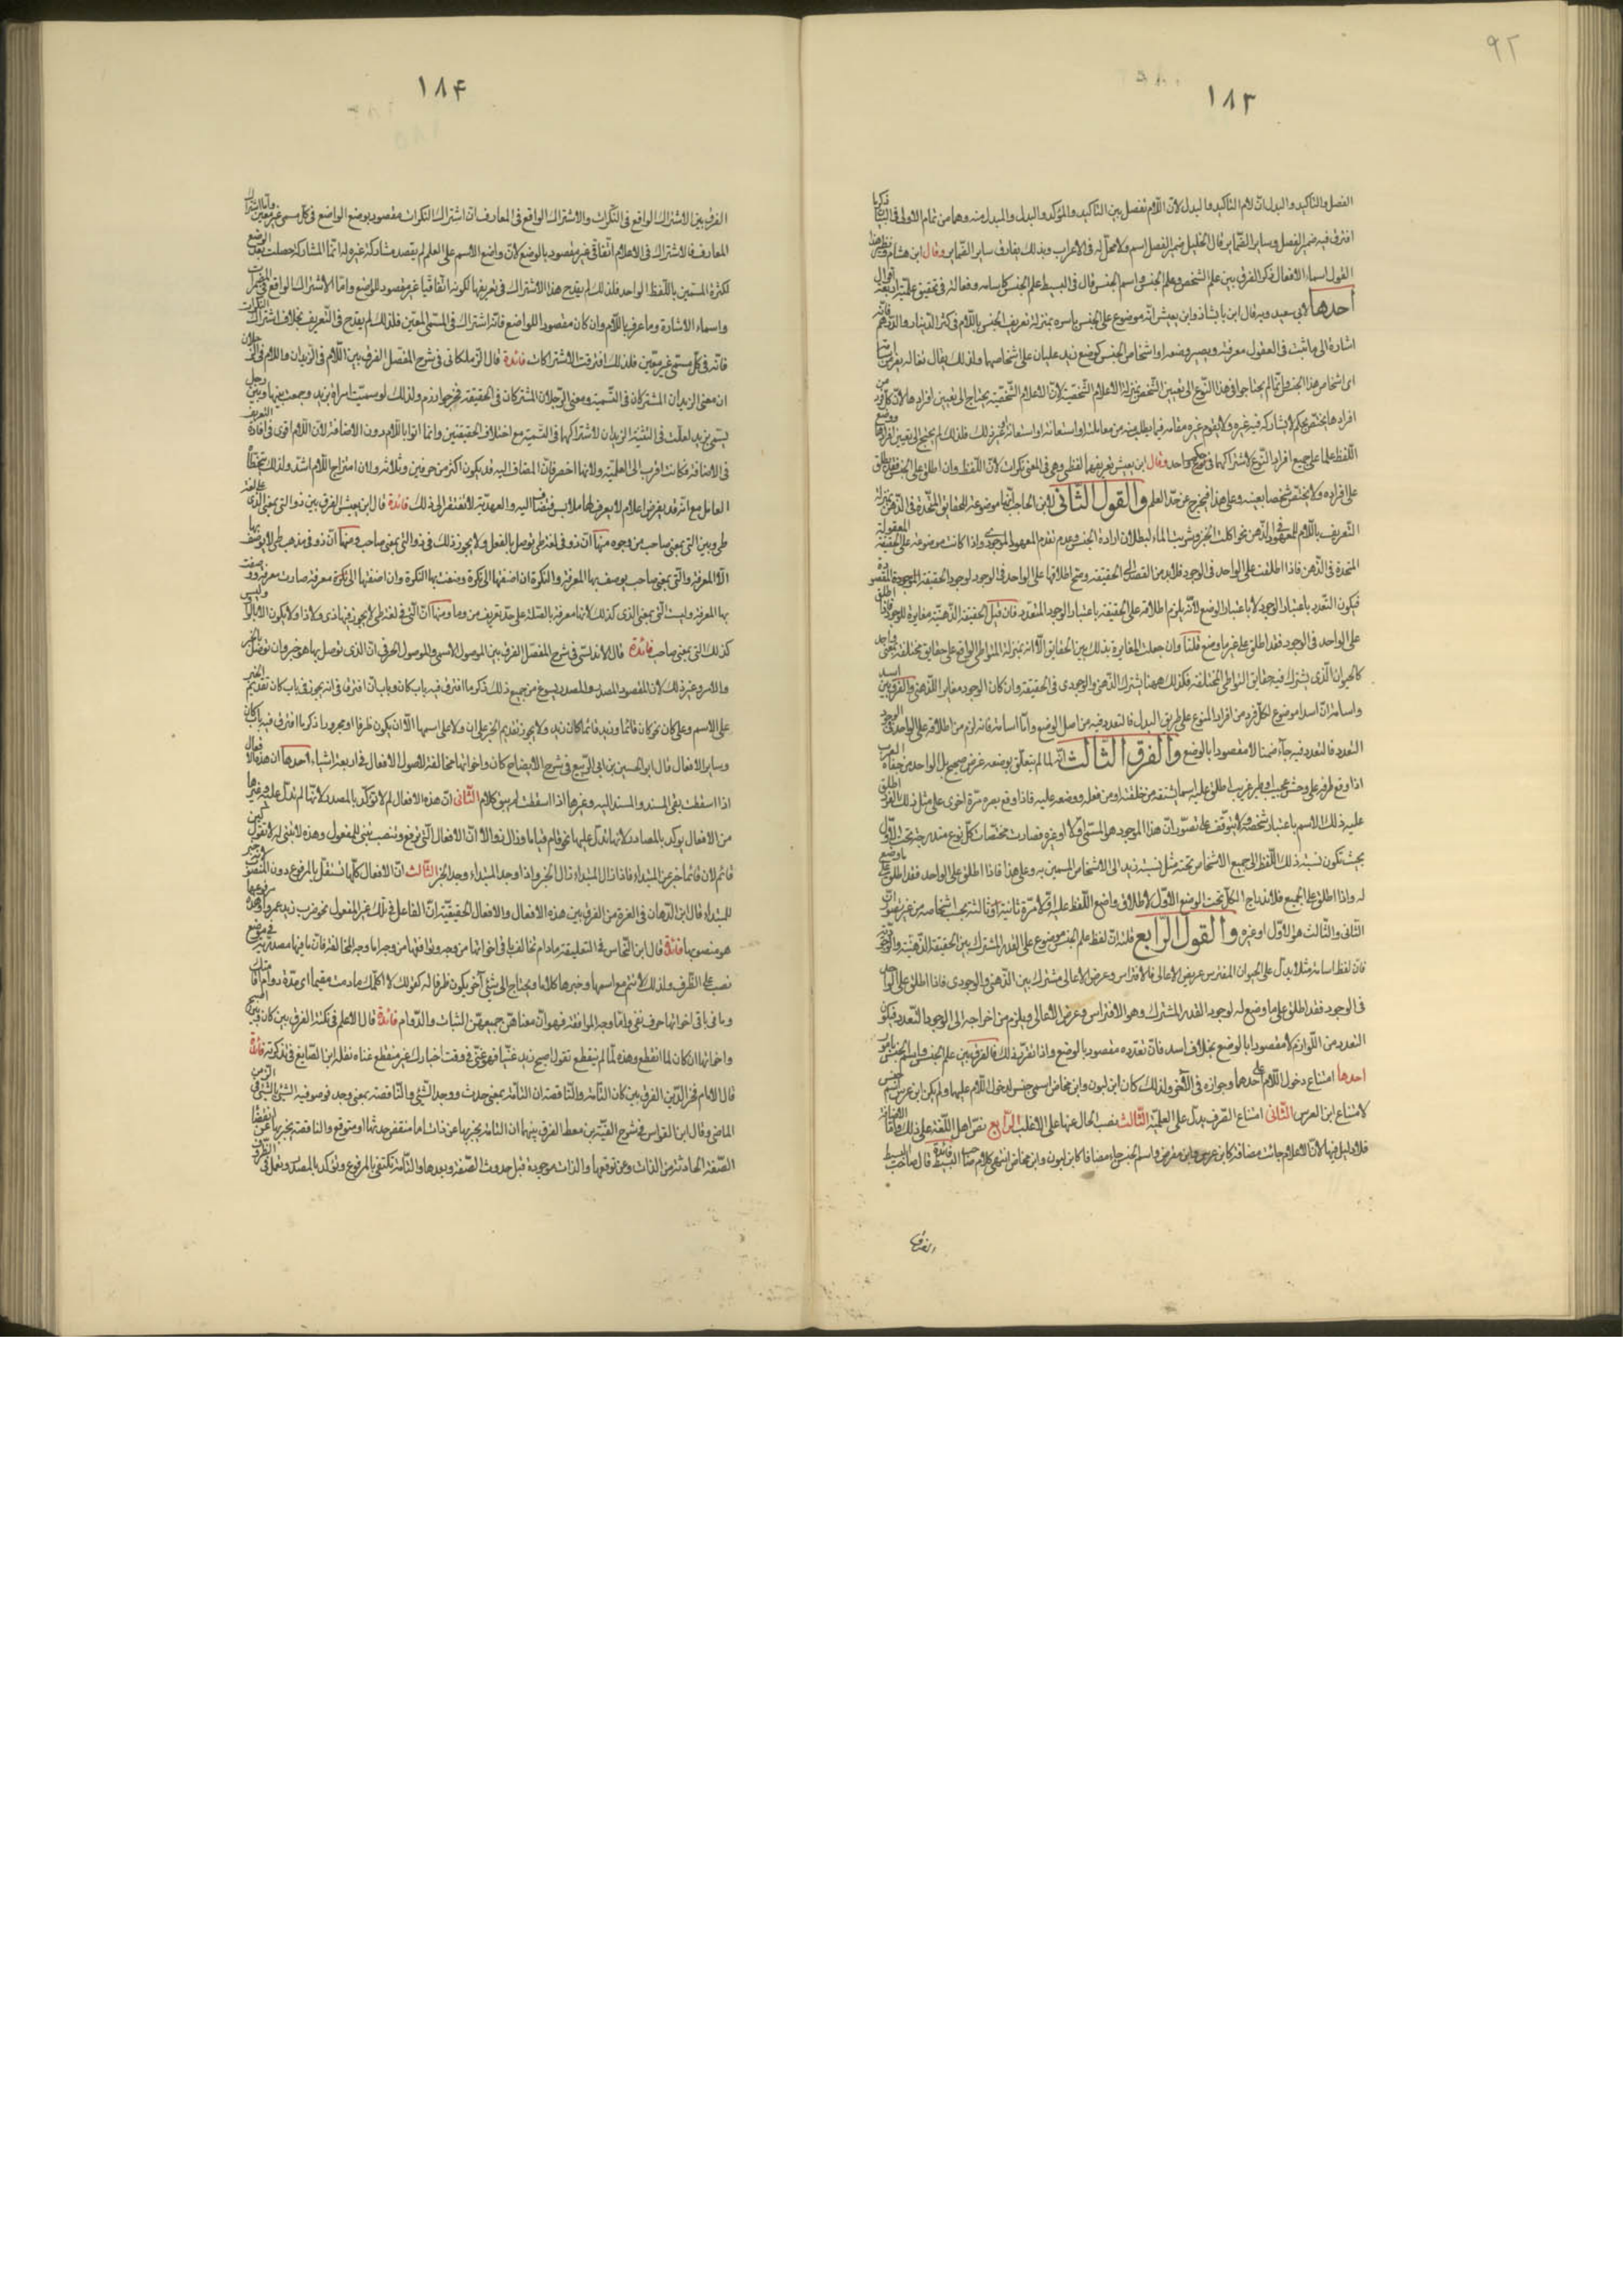 ٩٢
١٨٣
الفصل والتاكيد والبدل ان لام التاكيد والبدل لان اللام تفصل بين التاكيد والمؤكد والبدل والمبدل منه وهما من تمام الاول فى البيان
افترق فيه ضمير الفصل وساير الضماير قال الخليل ضمير الفصل اسم ولا محل له من الاعراب وبذلك يفارق ساير الضماير وقال ابن هشام
القول اسماء الافعال ذكر الفرق بين علم الشخص وعلم الجنس واسم الجنس قال فى البسيط علم الجنس كاسامه وثعاله فى تحقيق علميته اربعة اقوال
احدها لابى سعيد وبه قال ابن بابشاذ وابن يعيش انه موضوع على الجنس باسره بمنزلة تعريف الجنس باللام فى كثر الدينار والدرهم فانه
اشارة الى ما ثبت فى العقول معرفته ويصير وضعه او اشخاص الجنس كوضع زيد علمان على اشخاصها ولذلك يقال ثعاله يفر من اسامة
اى اشخاص هذا الجنس وانما لم يحتاجوا فى هذا النوع الى تعيين الشخص بمنزلة الاعلام الشخصية لان الاعلام الشخصية يحتاج الى تعيين افرادها لان كل فرد من
افرادها يختص بحكم لا يشاركه فيه غيره ولا يقوم غيره مقامه فيما يطلب منه من معاملته او استعانته او غير ذلك فلذلك لم يحتج الى تعيين افرادها ووضع
اللفظ علما على جميع افراد النوع لاشتراكها فى حكم واحد وقال ابن يعيش تعريفها لفظى وهى فى المعنى نكرات لان اللفظ وان اطلق على الجنس فقد يطلق
على افراده ولا يختص شخصا بعينه وعلى هذا فيخرج عن حد العلم والقول الثانى لابن الحاجب انها موضوعة للحقايق المتحدة فى الذهن بمنزلة
التعريف باللام للمعهود فى الذهن نحو اكلت الخبز وشربت الماء لبطلان ارادة الجنس وعدم تقدم المعهود الوجودى واذا كانت موضوعة على الحقيقة المعقولة
المتحدة فى الذهن فاذا اطلقت على الواحد فى الوجود فلا بد من القصد الى الحقيقة وصح اطلاقها على الواحد فى الوجود لوجود الحقيقة المقصودة
فيكون التعدد باعتبار الوجود لا باعتبار الوضع لانه يلزم اطلاقه على الحقيقة باعتبار الوجود المتعدد فان قيل الحقيقة الذهنية مغايرة للوجود فاذا اطلق
على الواحد فى الوجود فقد اطلق على غير ما وضع قلنا وان جعلت المغايرة بذلك بين الحقايق الا انه بمنزلة المتواطى الواقع على حقايق مختلفة بمعنى واحد
كالحيوان الذى يشترك فيه حقايق التواطى المختلفة فكذلك ههنا يشترك الذهنى والوجودى فى الحقيقة وان كان الوجود مغاير الذهنى والفرق بين اسد
واسامة ان اسدا موضوع لكل فرد من افراد النوع على طريق البدل فالتعدد فيه من اصل الوضع واما اسامة فانه لزم من اطلاقه على الواحد فى الوجود
التعدد فالتعدد فيه جاء ضمنا لا مقصودا بالوضع والفرق الثالث انه لما لم يتعلق بوضعه غرض صحيح بل الواحد من جفاة العرب
اذا وقع طرفه على وحش عجيب او طير غريب اطلق عليه اسما يشتقه من خلقته او من فعله ووضعه عليه فاذا وقع بصره مرة اخرى على مثل ذلك الفرد اطلق
عليه ذلك الاسم باعتبار شخصه ولا يتوقف على تصور ان هذا الموجود هو المسمى اولا او غيره فصارت مختصات كل نوع مندرجة تحت الاول
بحيث تكون نسبة ذلك اللفظ الى جميع الاشخاص تحته مثل نسبة زيد الى الاشخاص المسمين به وعلى هذا فاذا اطلق على الواحد فقد اطلق على ما وضع
له واذا اطلق على الجميع فلاندراج الكل تحت الوضع الاول لاطلاق واضع اللفظ عليه مرة ثانية وثالثة بحسب اشخاصه من غير تصور ان
الثانى والثالث هو الاول او غيره والقول الرابع قلنا ان لفظ علم الجنس موضوع على القدر المشترك بين الحقيقة الذهنية والوجودية
فان لفظ اسامة مثلا يدل على الحيوان المفترس عريض الاعالى فالافتراس وعرض الاعالى مشترك بين الذهنى والوجودى فاذا اطلق على الواحد
فى الوجود فقد اطلق على ما وضع له لوجود القدر المشترك وهو الافتراس وعرض الاعالى ويلزم من اخراجه الى الوجود التعدد فيكون
التعدد من اللوازم لا مقصودا بالوضع بخلاف اسد فان تعدده مقصود بالوضع واذا تقرر ذلك فالفرق بين علم الجنس واسم الجنس بامور
احدها امتناع دخول اللام على احدها وجوازه فى الآخر ولذلك كان ابن لبون وابن مخاض اسمى جنس لدخول اللام عليهما ولم يكن ابن عرس اسم جنس
لامتناع ابن العرس الثانى امتناع الصرف يدل على العلمية الثالث نصب الحال عنها على الاغلب الرابع نص اهل اللغة على ذلك
فلا دليل فيها لان الاعلام جائت مضافة كابن عرس وابن مقرض واسم الجنس جاء مضافا كابن لبون وابن مخاض انتهى كلام صاحب البسيط فائدة قال صاحب البسيط
الفرق
١٨۴
الفرق بين الاشتراك الواقع فى النكرات والاشتراك الواقع فى المعارف ان اشتراك النكرات مقصود بوضع الواضع فى كل مسمى غير معين واما اشتراك
المعارف فالاشتراك فى الاعلام اتفاقى غير مقصود بالوضع لان واضع الاسم على العلم لم يقصد مشاركة غيره له انما المشاركة حصلت بعد الوضع
لكثرة المسمين باللفظ الواحد فلذلك لم يقدح هذا الاشتراك فى تعريفها لكونه اتفاقيا غير مقصود للواضع واما الاشتراك الواقع فى المضمرات
واسماء الاشارة وما عرف باللام وان كان مقصودا للواضع فانه اشتراك فى المسمى المعين فلذلك لم يقدح فى التعريف بخلاف اشتراك النكرات
فانه فى كل مسمى غير معين فلذلك افترقت الاشتراكات فائدة قال الزملكانى فى شرح المفصل الفرق بين اللام فى الزيدان واللام فى الرجلان
ان معنى الزيدان المشتركان فى التسمية ومعنى الرجلان المشتركان فى الحقيقة ولذلك لو سميت امراة بزيد وجمعت بينها وبين رجل
يسمى بزيد لقلت فى التثنية الزيدان لاشتراكهما فى التسمية مع اختلاف الحقيقتين وانما اتوا باللام دون الاضافة لان اللام اقوى فى افادة التعريف
فى الاضافة فكانت اقرب الى العلمية ولانها اخصر فان المضاف اليه قد يكون اكثر من حرفين وثلاثة ولان امتزاج اللام اشد ولذلك
العامل مع انه قد يفرض اعلام لا يعرف لها ملابس فيضاف اليه والعهدية لا تفتقر الى ذلك فائدة قال ابن يعيش الفرق بين ذو التى بمعنى الذى على لغة
طى وبين التى بمعنى صاحب من وجوه منها ان ذو فى لغة طى توصل بالفعل ولا يجوز ذلك فى ذو التى بمعنى صاحب ومنها ان ذو فى مذهب طى لا يوصف بها
الا المعرفة والتى بمعنى صاحب يوصف بها المعرفة والنكرة ان اضفتها الى نكرة وصفت بها النكرة وان اضفتها الى معرفة صارت معرفة ووصفت
بها المعرفة وليست التى بمعنى الذى كذلك لانها معرفة بالصلة على حد تعريف من وما ومنها ان التى فى لغة طى لا يجوز فيها ذى ولا ذا ولا يكون الا بالواو وليس
كذلك التى بمعنى صاحب فائدة قال الاندلسى فى شرح المفصل الفرق بين الموصول الاسمى والموصول الحرفى ان الذى توصل بما هو خبر وان توصل بالخبر
والامر وغير ذلك لان المقصود المصدر والمصدر يسوغ من جميع ذلك ذكر ما افترق فيه باب كان وباب ان افترقا فى انه يجوز فى باب كان تقديم الخبر
على الاسم وعلى كان نحو كان قائما زيد وقائما كان زيد ولا يجوز تقديم الخبر على ان ولا على اسمها الا ان يكون ظرفا او مجرورا ذكر ما افترق فيه باب كان
وساير الافعال قال ابو الحسين بن ابى الربيع فى شرح الايضاح كان واخواتها مخالفة لاصول الافعال فى اربعة اشياء احدها ان هذه الافعال
اذا اسقطت بقى المسند والمسند اليه وغيرها اذا اسقطت لم يبق كلام الثانى ان هذه الافعال لا تؤكد بالمصدر لانها لم تدل عليه وغيرها
من الافعال يوكد بالمصادر لانها تدل عليها نحو قام قياما وزال زوالا الا ان الافعال التى ترفع وتنصب تبنى للمفعول وهذه لا تبنى له لا تقول كين
قائم لان قائما خبر عن المبتداء فاذا زال المبتداء زال الخبر واذا وجد المبتداء وجد الخبر الثالث ان الافعال كلها تستقل بالمرفوع دون المنصوب
للمبتداء قال ابن الدهان فى الغرة من الفرق بين هذه الافعال والافعال الحقيقية ان الفاعل فى تلك غير المفعول نحو ضرب زيد عمروا وهذه مرفوعها
هو منصوبها فائدة قال ابن النحاس فى التعليقة مادام تخالف باقى اخواتها من وجه وتوافقها من وجه اما وجه المخالفة فان ما فيها مصدرية فى موضع
نصب على الظرف ولذلك لا تتم مع اسمها وخبرها كلاما ويحتاج الى شئ آخر يكون ظرفا له كقولك لا اكلمك مادمت مقيما اى مدة دوام اقامتك
وما فى باقى اخواتها حرف نفى واما وجه الموافقة فهو ان معناهن جميعهن الثبات والدوام فائدة قال الاعلم فى نكته الفرق بين كان واصبح
واخواتهما ان كان لما انقطع وهذه لما لم ينقطع تقول اصبح زيد غنيا فهو غنى فى وقت اخبارك غير منقطع غناه نقله ابن الصايغ فى تذكرته فائدة
قال الامام فخر الدين الفرق بين كان التامة والناقصة ان التامة بمعنى حدث ووجد الشئ والناقصة بمعنى وجد موصوفية الشئ بالشئ فى الزمن
الماضى وقال ابن القواس فى شرح الفية ابن معط الفرق بينهما ان التامة يخبر بها عن ذات اما منقض حدثها او متوقع والناقصة يخبر بها عن انقضاء
الصفة الحادثة من الذات وعن توقعها والذات موجودة قبل حدوث الصفة وبعدها والتامة تكتفى بالمرفوع وتؤكد بالمصدر وتعمل فى الظرف